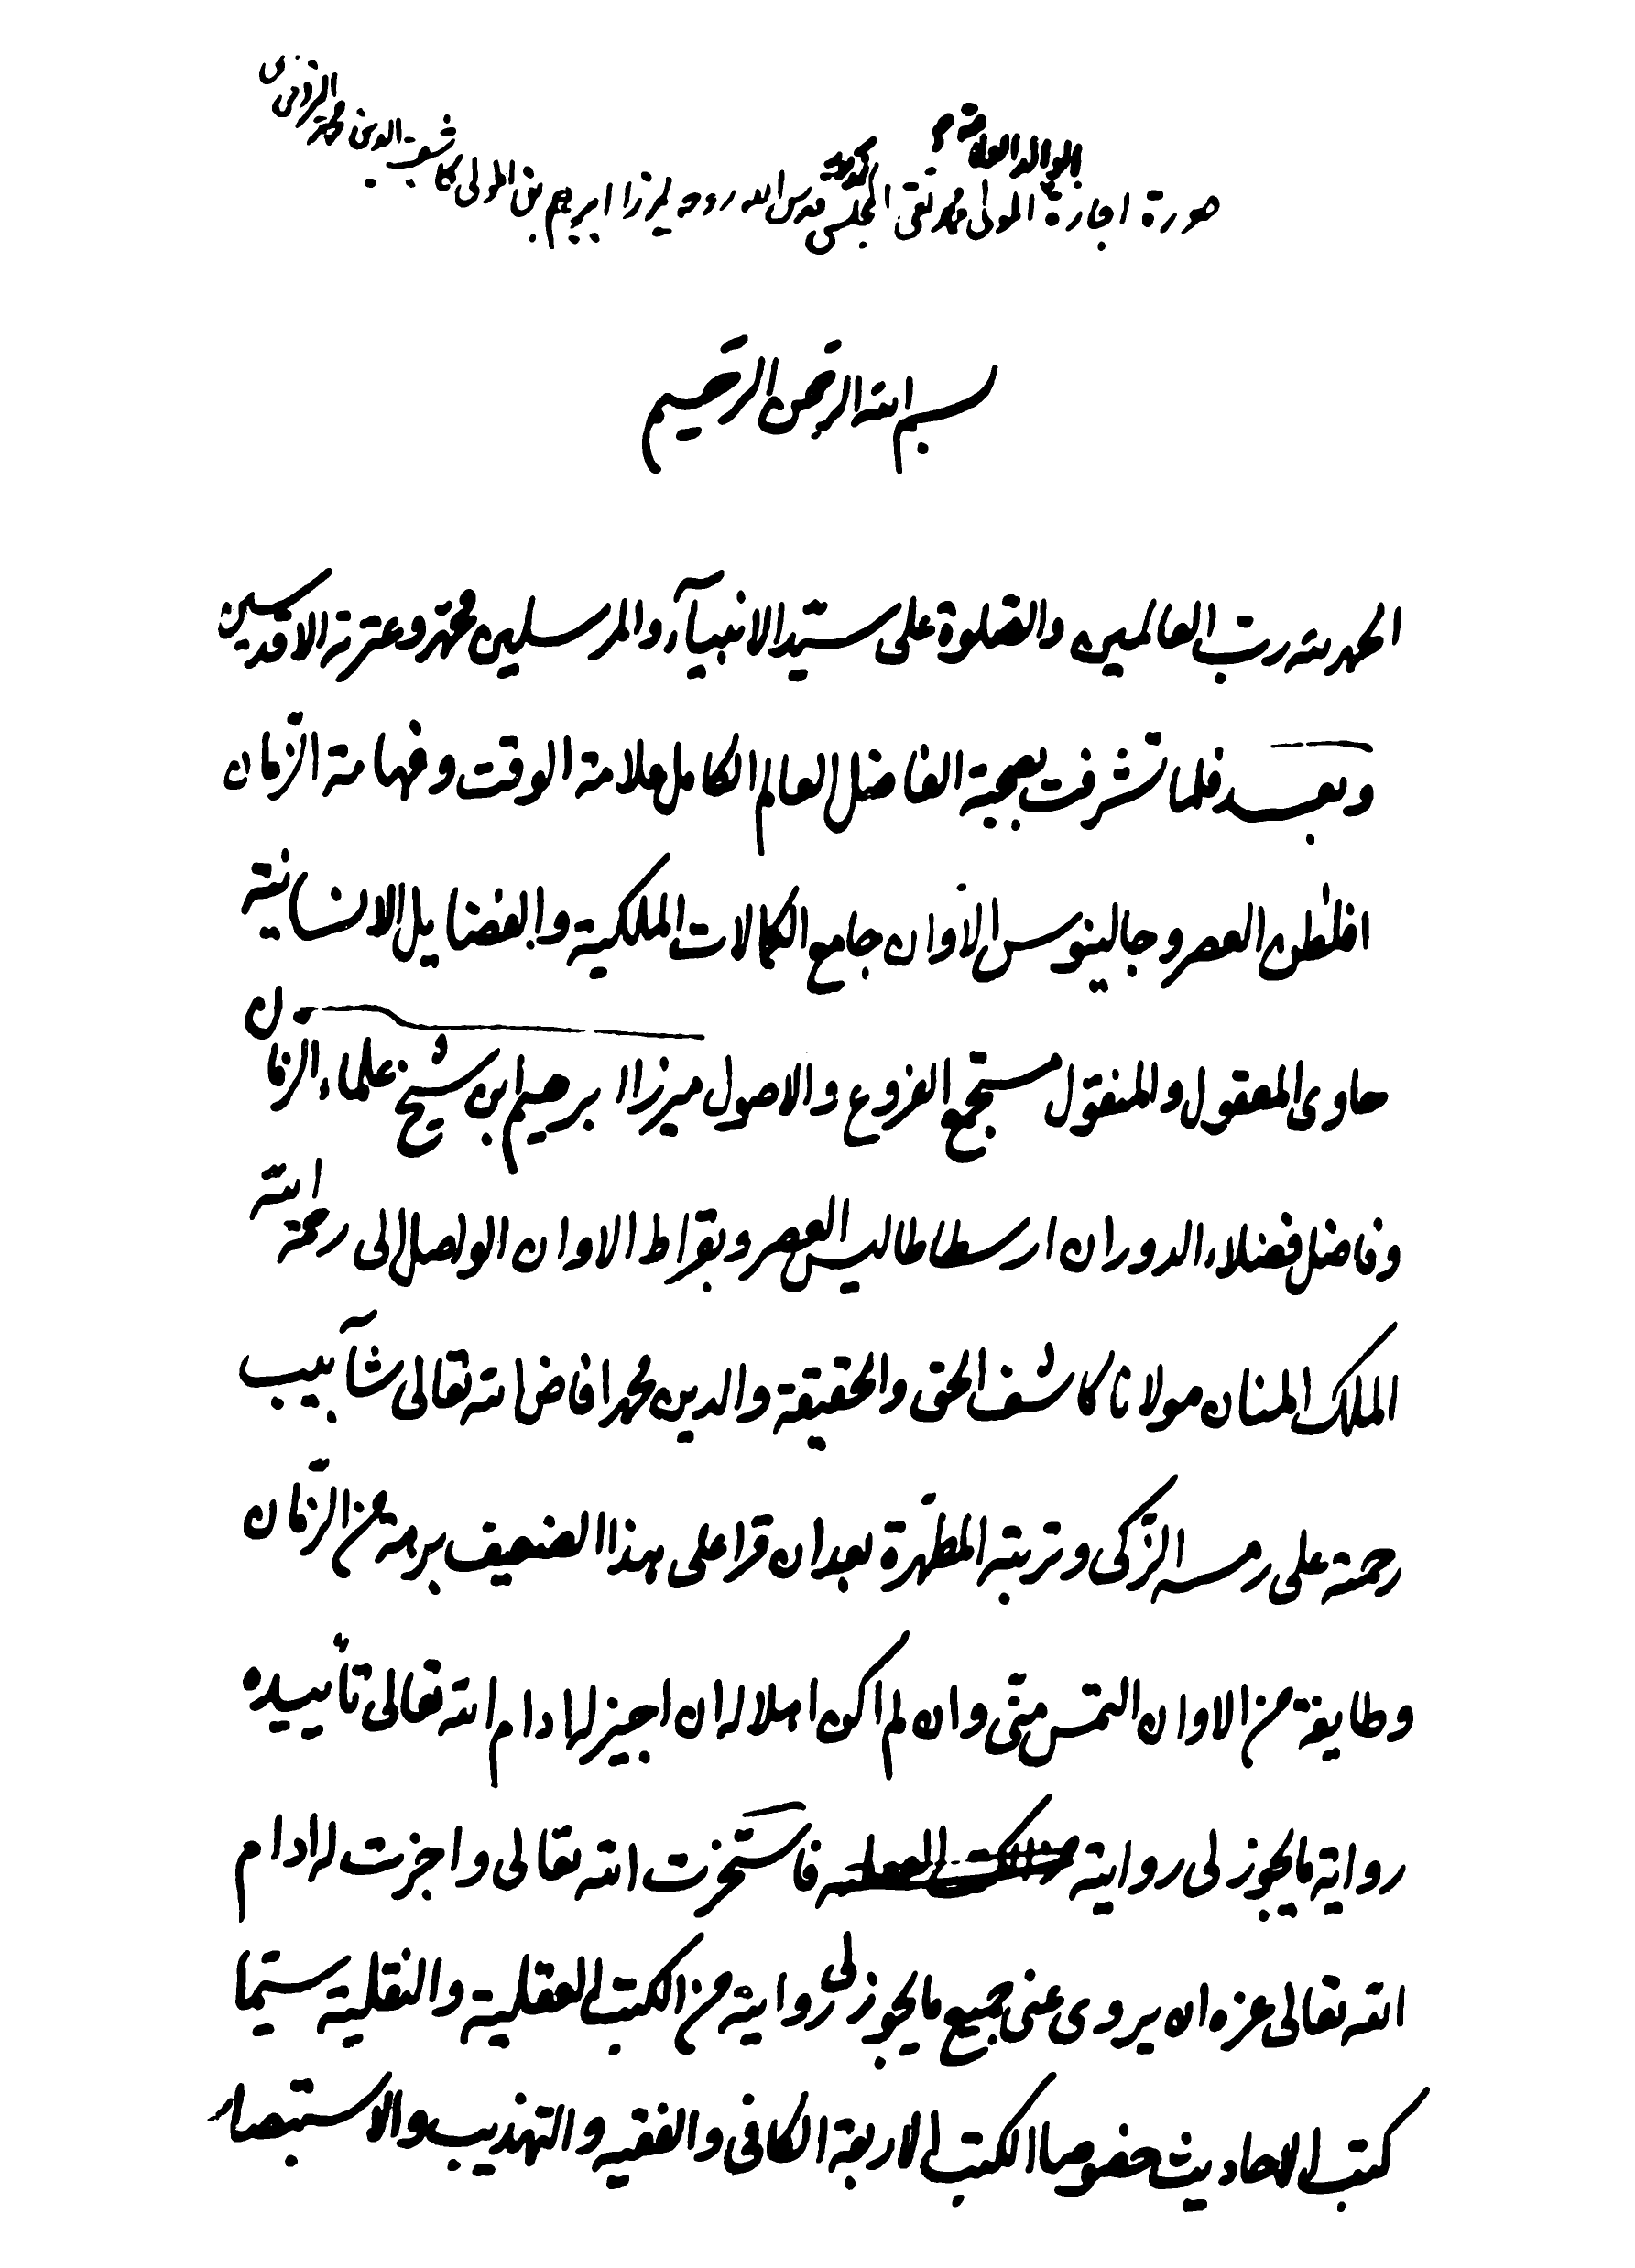 الوالد العلامة
صورة اجازة المولى محمد تقى المجلسى قدس الله روحه لميرزا ابرهيم بن المولى كاشف الدين محمد اليزدى
بسم الله الرحمن الرحيم
الحمد لله رب العالمين والصلوة على سيد الانبيآء والمرسلين محمد وعترته الاقدسين
وبعد فلما تشرفت بصحبة الفاضل العالم الكامل علامة الوقت وفهامة الزمان
افلطن العصر وجالينوس الأوان جامع الكمالات الملكية والفضايل الانسانية
حاوى المعقول والمنقول مستجمع الفروع والاصول ميرزا ابرهيم ابن شيخ علماء الزمان
وفاضل فضلاء الدوران ارسطاطاليس العصر وبقراط الاوان الواصل الى رحمة الله
الملك المنان مولانا كاشف الحق والحقيقة والدين محمد افاض الله تعالى شآبيب
رحمته على رمسه الزكى وتربته المطهرة بعد ان قرا على هذا الضعيف برهة من الزمان
وطايفة من الاوان التمس منى وان لم اكن اهلا له ان اجيز له ادام الله تعالى تأييده
رواية ما يجوز لى روايته فاستخرت الله تعالى واجزت له ادام
الله تعالى عزه ان يروى عنى جميع ما يجوز لى روايته من الكتب العقلية والنقلية سيما
كتب الاحاديث خصوصا الكتب الاربعة الكافى والفقيه والتهذيب والاستبصار